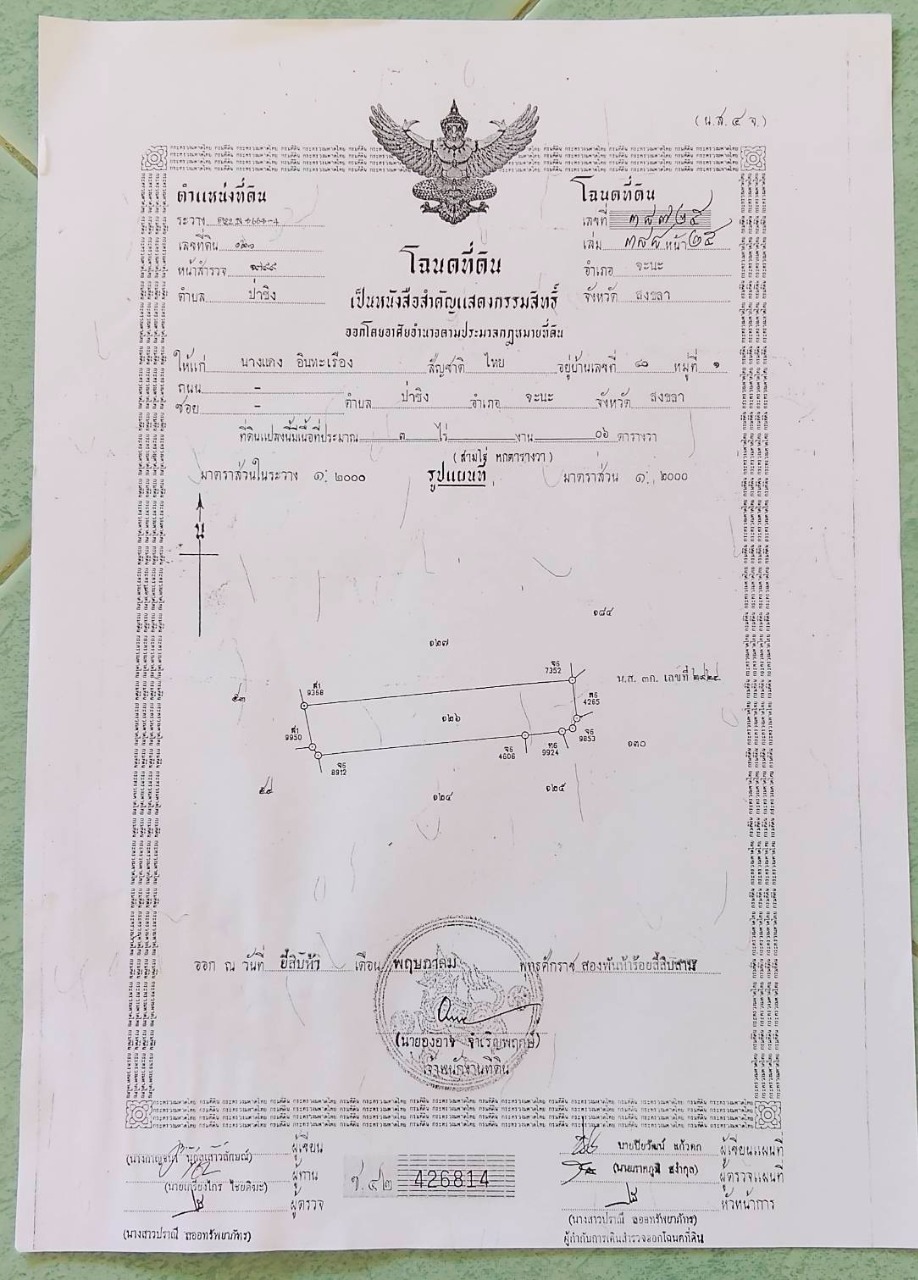 (น.ส.๔ จ.)
ตำแหน่งที่ดิน
ระวาง
เลขที่ดิน ๑๒๖
หน้าสำรวจ
ตำบล ป่าชิง
โฉนดที่ดิน
เลขที่ ๓๘๗๒๕
เล่ม หน้า ๒๕
อำเภอ จะนะ
จังหวัด สงขลา
โฉนดที่ดิน
เป็นหนังสือสำคัญแสดงกรรมสิทธิ์
ออกโดยอาศัยอำนาจตามประมวลกฎหมายที่ดิน
ให้แก่ นางแดง อินทะเรือง สัญชาติ ไทย อยู่บ้านเลขที่ ๘๐ หมู่ที่ ๑
ถนน –
ซอย – ตำบล ป่าชิง อำเภอ จะนะ จังหวัด สงขลา
ที่ดินแปลงนี้มีเนื้อที่ประมาณ ๓ ไร่ งาน ๐๖ ตารางวา
(สามไร่ หกตารางวา)
มาตราส่วนในระวาง ๑ : ๒๐๐๐ รูปแผนที่ มาตราส่วน ๑ : ๒๐๐๐
น
๑๘๔
๑๒๗
จ6
7352
น.ส. ๓ก. เลขที่
ส1
9368
๕๓
ต6
4265
๑๒๖
ส1
9950
จ6
9853
๑๓๐
จ6
4606
ท6
9924
จ6
8912
๑๒๔
๑๒๕
ออก ณ วันที่ ยี่สิบห้า เดือน พฤษภาคม พุทธศักราช สองพันห้าร้อยสี่สิบสาม
(นายองอาจ จำเริญพฤกษ์)
เจ้าพนักงานที่ดิน
ผู้เขียน
ผู้ทาน
(นายเกรียงไกร ไชยติฆะ)
ผู้ตรวจ
(นางสาวปราณี ละออทรัพยาภัทร)
ว.๔๒ 426814
นายปิยวัฒน์ แก้วตก ผู้เขียนแผนที่
ผู้ตรวจแผนที่
หัวหน้าการ
(นางสาวปราณี ละออทรัพยาภัทร)
ผู้กำกับการเดินสำรวจออกโฉนดที่ดิน